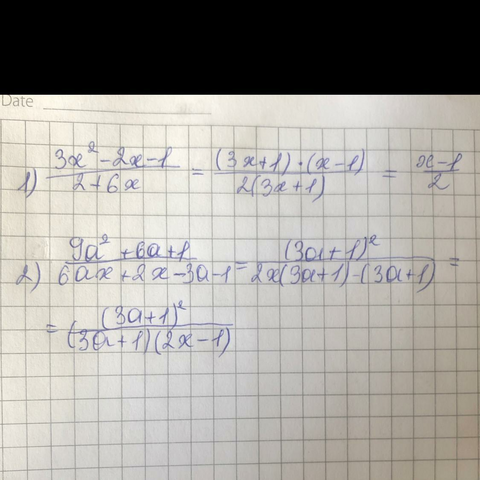 Date
1) (3x²-2x-1)/(2+6x) = ((3x+1)·(x-1))/(2(3x+1)) = (x-1)/2
2) (9a²+6a+1)/(6ax+2x-3a-1) = (3a+1)²/(2x(3a+1)-(3a+1)) =
= (3a+1)²/((3a+1)(2x-1))